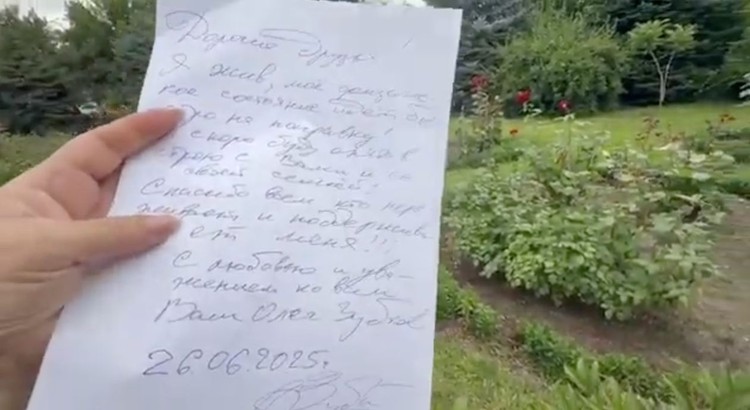 Дорогие Друзья!
Я жив, моё физичес
кое состояние идёт бы
стро на поправку!
скоро буду опять в
строю с Вами и со
своей семьёй!
Спасибо всем кто пере
живает и поддержива
ет меня!!!
С любовью и ува-
жением ко всем
Ваш Олег Зубков
26.06.2025г.